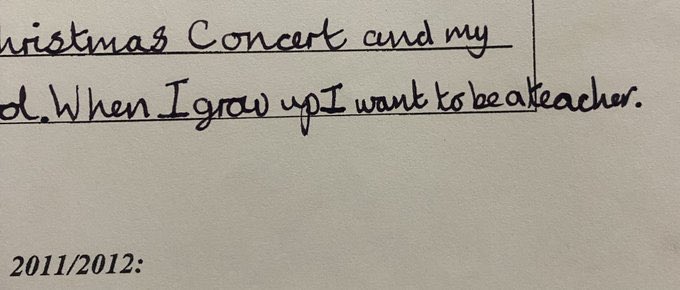 hristmas Concert and my
d. When I grow up I want to be a teacher.
2011/2012: